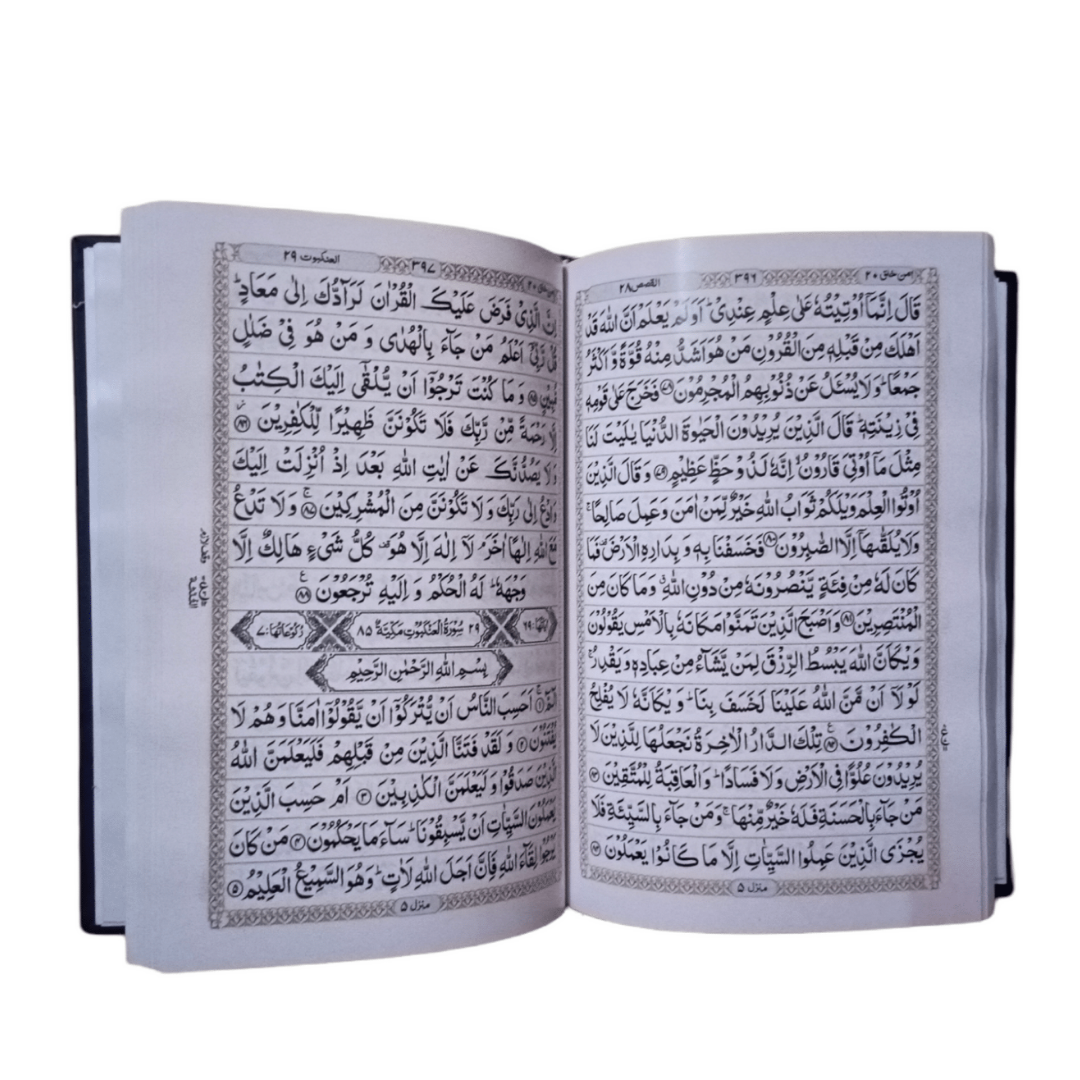 امن خلق ٢٠
٣٩٦
القصص ٢٨
قَالَ اِنَّمَاۤ اُوْتِيْتُهٗ عَلٰى عِلْمٍ عِنْدِيْ ؕ اَوَ لَمْ يَعْلَمْ اَنَّ اللّٰهَ قَدْ
اَهْلَكَ مِنْ قَبْلِهٖ مِنَ الْقُرُوْنِ مَنْ هُوَ اَشَدُّ مِنْهُ قُوَّةً وَّ اَكْثَرُ
جَمْعًا ؕ وَ لَا يُسْـَٔلُ عَنْ ذُنُوْبِهِمُ الْمُجْرِمُوْنَ ٧٨ فَخَرَجَ عَلٰى قَوْمِهٖ
فِيْ زِيْنَتِهٖ ؕ قَالَ الَّذِيْنَ يُرِيْدُوْنَ الْحَيٰوةَ الدُّنْيَا يٰلَيْتَ لَنَا
مِثْلَ مَاۤ اُوْتِيَ قَارُوْنُ ۙ اِنَّهٗ لَذُوْ حَظٍّ عَظِيْمٍ ٧٩ وَ قَالَ الَّذِيْنَ
اُوْتُوا الْعِلْمَ وَيْلَكُمْ ثَوَابُ اللّٰهِ خَيْرٌ لِّمَنْ اٰمَنَ وَ عَمِلَ صَالِحًا ۚ
وَ لَا يُلَقّٰىهَاۤ اِلَّا الصّٰبِرُوْنَ ٨٠ فَخَسَفْنَا بِهٖ وَ بِدَارِهِ الْاَرْضَ ۫ فَمَا
كَانَ لَهٗ مِنْ فِئَةٍ يَّنْصُرُوْنَهٗ مِنْ دُوْنِ اللّٰهِ ۗ وَ مَا كَانَ مِنَ
الْمُنْتَصِرِيْنَ ٨١ وَ اَصْبَحَ الَّذِيْنَ تَمَنَّوْا مَكَانَهٗ بِالْاَمْسِ يَقُوْلُوْنَ
وَيْكَاَنَّ اللّٰهَ يَبْسُطُ الرِّزْقَ لِمَنْ يَّشَآءُ مِنْ عِبَادِهٖ وَ يَقْدِرُ ۚ
لَوْ لَاۤ اَنْ مَّنَّ اللّٰهُ عَلَيْنَا لَخَسَفَ بِنَا ؕ وَيْكَاَنَّهٗ لَا يُفْلِحُ
الْكٰفِرُوْنَ ٨٢ تِلْكَ الدَّارُ الْاٰخِرَةُ نَجْعَلُهَا لِلَّذِيْنَ لَا
يُرِيْدُوْنَ عُلُوًّا فِي الْاَرْضِ وَ لَا فَسَادًا ؕ وَ الْعَاقِبَةُ لِلْمُتَّقِيْنَ ٨٣
مَنْ جَآءَ بِالْحَسَنَةِ فَلَهٗ خَيْرٌ مِّنْهَا ۚ وَ مَنْ جَآءَ بِالسَّيِّئَةِ فَلَا
يُجْزَى الَّذِيْنَ عَمِلُوا السَّيِّاٰتِ اِلَّا مَا كَانُوْا يَعْمَلُوْنَ ٨٤
منزل ٥
امن خلق ٢٠
٣٩٧
العنكبوت ٢٩
اِنَّ الَّذِيْ فَرَضَ عَلَيْكَ الْقُرْاٰنَ لَرَآدُّكَ اِلٰى مَعَادٍ ؕ
قُلْ رَّبِّيْۤ اَعْلَمُ مَنْ جَآءَ بِالْهُدٰى وَ مَنْ هُوَ فِيْ ضَلٰلٍ
مُّبِيْنٍ ٨٥ وَ مَا كُنْتَ تَرْجُوْۤا اَنْ يُّلْقٰۤى اِلَيْكَ الْكِتٰبُ
اِلَّا رَحْمَةً مِّنْ رَّبِّكَ فَلَا تَكُوْنَنَّ ظَهِيْرًا لِّلْكٰفِرِيْنَ ٨٦
وَ لَا يَصُدُّنَّكَ عَنْ اٰيٰتِ اللّٰهِ بَعْدَ اِذْ اُنْزِلَتْ اِلَيْكَ
وَ ادْعُ اِلٰى رَبِّكَ وَ لَا تَكُوْنَنَّ مِنَ الْمُشْرِكِيْنَ ٨٧ وَ لَا تَدْعُ
مَعَ اللّٰهِ اِلٰهًا اٰخَرَ ۘ لَاۤ اِلٰهَ اِلَّا هُوَ ۫ كُلُّ شَيْءٍ هَالِكٌ اِلَّا
وَجْهَهٗ ؕ لَهُ الْحُكْمُ وَ اِلَيْهِ تُرْجَعُوْنَ ٨٨
اٰيَاتُهَا: ٦٩ ٢٩ سُوْرَةُ الْعَنْكَبُوْتِ مَكِّيَّةٌ ٨٥ رُكُوْعَاتُهَا: ٧
بِسْمِ اللّٰهِ الرَّحْمٰنِ الرَّحِيْمِ
الٓمّٓ ١ اَحَسِبَ النَّاسُ اَنْ يُّتْرَكُوْۤا اَنْ يَّقُوْلُوْۤا اٰمَنَّا وَ هُمْ لَا
يُفْتَنُوْنَ ٢ وَ لَقَدْ فَتَنَّا الَّذِيْنَ مِنْ قَبْلِهِمْ فَلَيَعْلَمَنَّ اللّٰهُ
الَّذِيْنَ صَدَقُوْا وَ لَيَعْلَمَنَّ الْكٰذِبِيْنَ ٣ اَمْ حَسِبَ الَّذِيْنَ
يَعْمَلُوْنَ السَّيِّاٰتِ اَنْ يَّسْبِقُوْنَا ؕ سَآءَ مَا يَحْكُمُوْنَ ٤ مَنْ كَانَ
يَرْجُوْا لِقَآءَ اللّٰهِ فَاِنَّ اَجَلَ اللّٰهِ لَاٰتٍ ؕ وَ هُوَ السَّمِيْعُ الْعَلِيْمُ ٥
منزل ٥